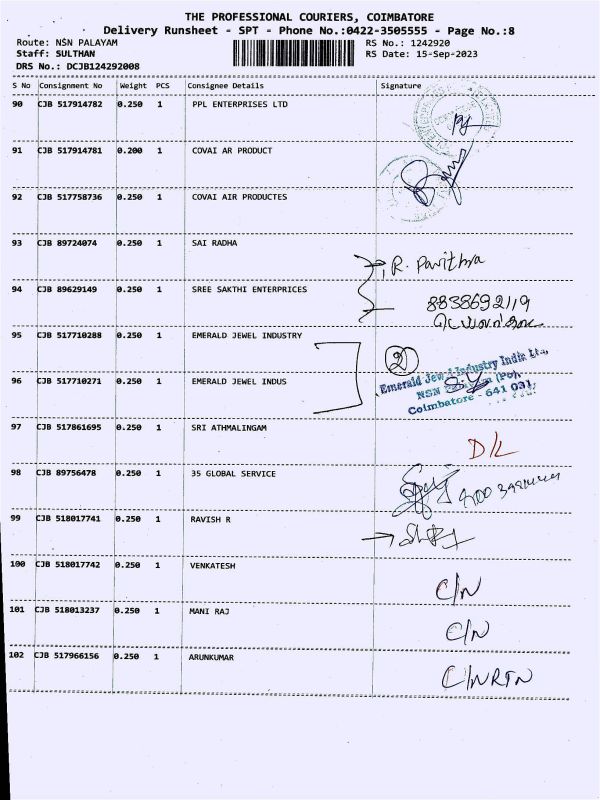 THE PROFESSIONAL COURIERS, COIMBATORE
Delivery Runsheet - SPT - Phone No.:0422-3505555 - Page No.:8
Route: NSN PALAYAM RS No.: 1242920
Staff: SULTHAN RS Date: 15-Sep-2023
DRS No.: DCJB124292008
S No Consignment No Weight PCS Consignee Details Signature
90 CJB 517914782 0.250 1 PPL ENTERPRISES LTD
91 CJB 517914781 0.200 1 COVAI AR PRODUCT
92 CJB 517758736 0.250 1 COVAI AIR PRODUCTES
93 CJB 89724074 0.250 1 SAI RADHA
R. Pavithra
94 CJB 89629149 0.250 1 SREE SAKTHI ENTERPRICES
8838692119
95 CJB 517710288 0.250 1 EMERALD JEWEL INDUSTRY
2
Emerald Jewel Industry India Ltd,
96 CJB 517710271 0.250 1 EMERALD JEWEL INDUS
NSN (PO),
Coimbatore - 641 031
97 CJB 517861695 0.250 1 SRI ATHMALINGAM
D/L
98 CJB 89756478 0.250 1 35 GLOBAL SERVICE
99 CJB 518017741 0.250 1 RAVISH R
100 CJB 518017742 0.250 1 VENKATESH
C/N
101 CJB 518013237 0.250 1 MANI RAJ
C/N
102 CJB 517966156 0.250 1 ARUNKUMAR
C/NRTN